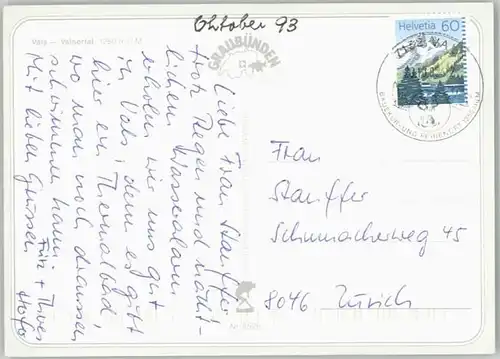 Oktober 93
Vals – Valsertal 1250 m ü. M.
GRAUBÜNDEN
Helvetia 60
7132 VALS
Liebe Frau Stauffer
trotz Regen und nächt-
lichem Wasseralarm
erholen wir uns gut
in Vals, denn es gibt
hier ein Thermalbad,
wo man noch draussen
schwimmen kann.
Mit lieben Grüssen
Fritz +
Hofer
Frau
Stauffer
Schumacherweg 45
8046 Zürich